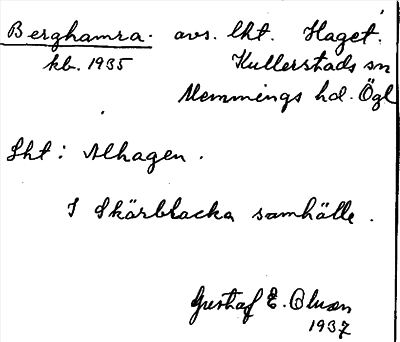 Berghamra. avs. lht. Haget.
kb. 1935 Kullerstads sn
Memmings hd. Ögl
Lht: Alhagen.
I Skärblacka samhälle.
Gustaf E. Oluson
1937